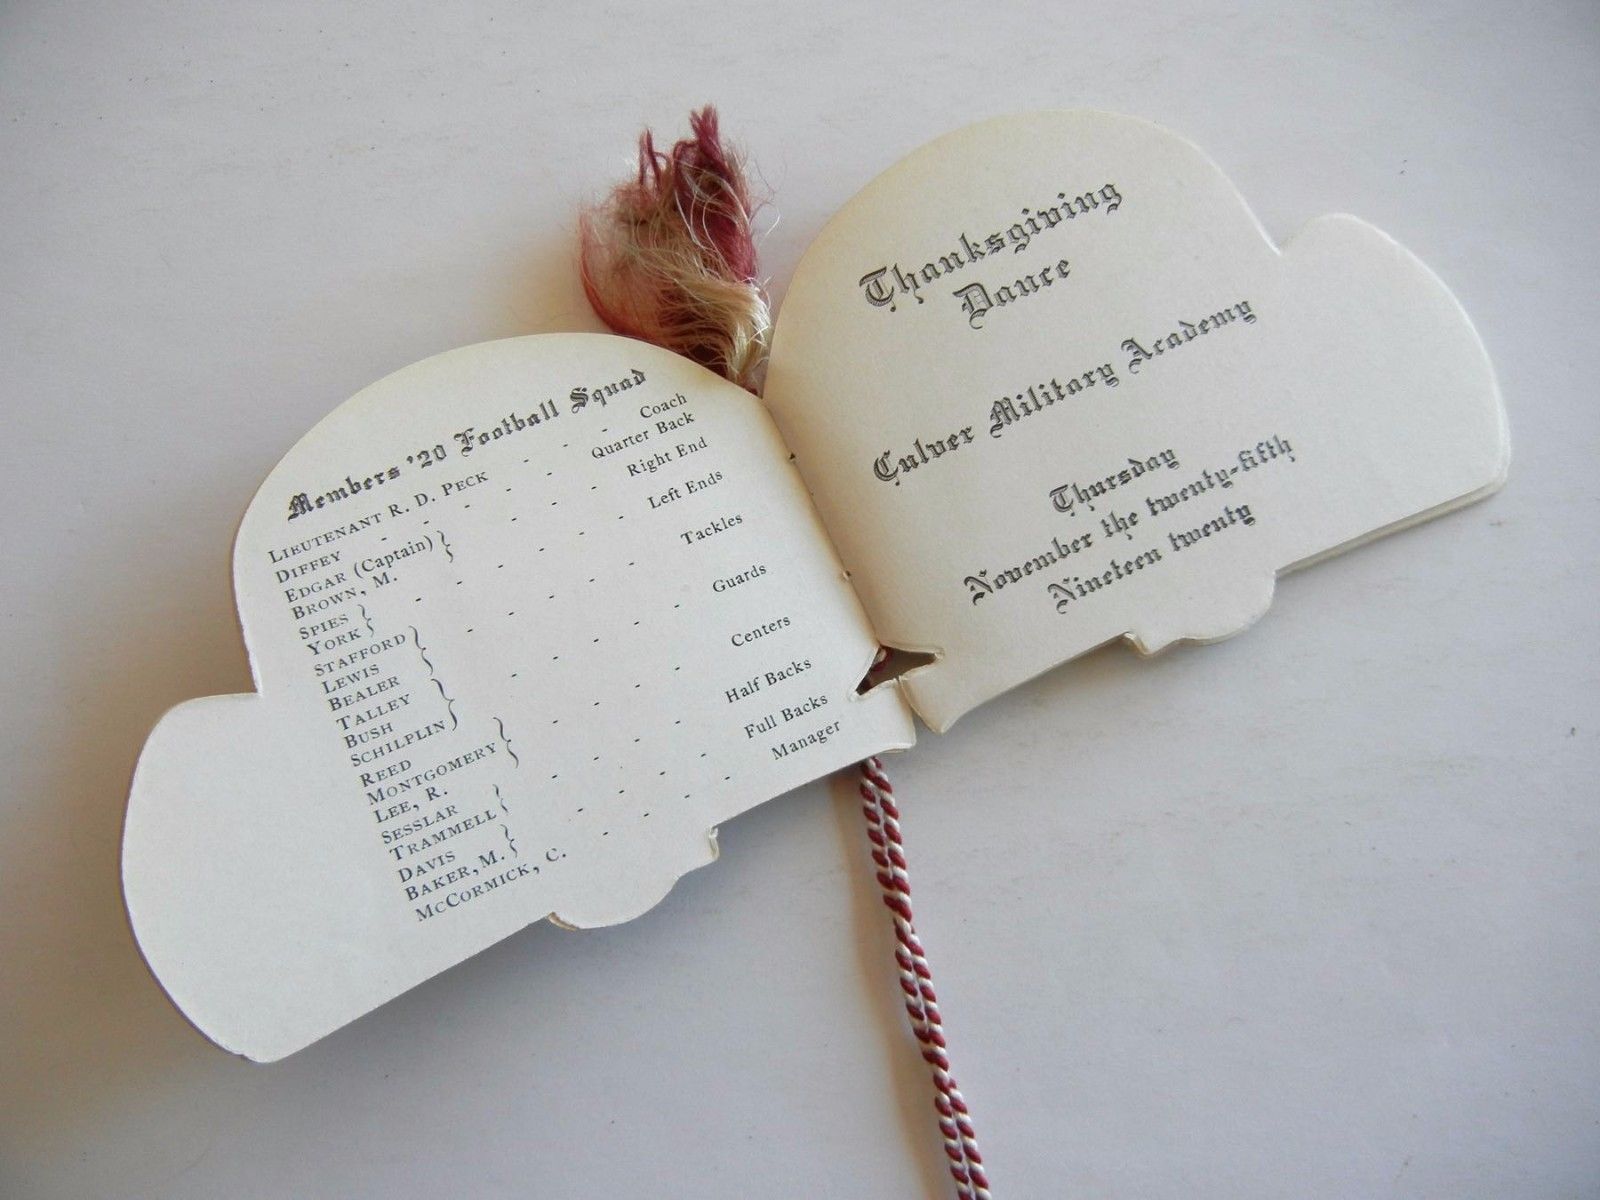 Members '20 Football Squad
LIEUTENANT R. D. PECK - - Coach
DIFFEY - - - - Quarter Back
EDGAR (Captain) } - - - Right End
BROWN, M.
SPIES } - - - - Left Ends
YORK
STAFFORD } - - - - Tackles
LEWIS
BEALER
TALLEY } - - - - Guards
BUSH
SCHILPLIN
REED } - - - Centers
MONTGOMERY
LEE, R.
SESSLAR } - - - - Half Backs
TRAMMELL
DAVIS } - - - - Full Backs
BAKER, M.
MCCORMICK, C. - - - - Manager
Thanksgiving
Dance
Culver Military Academy
Thursday
November the twenty-fifth
Nineteen twenty